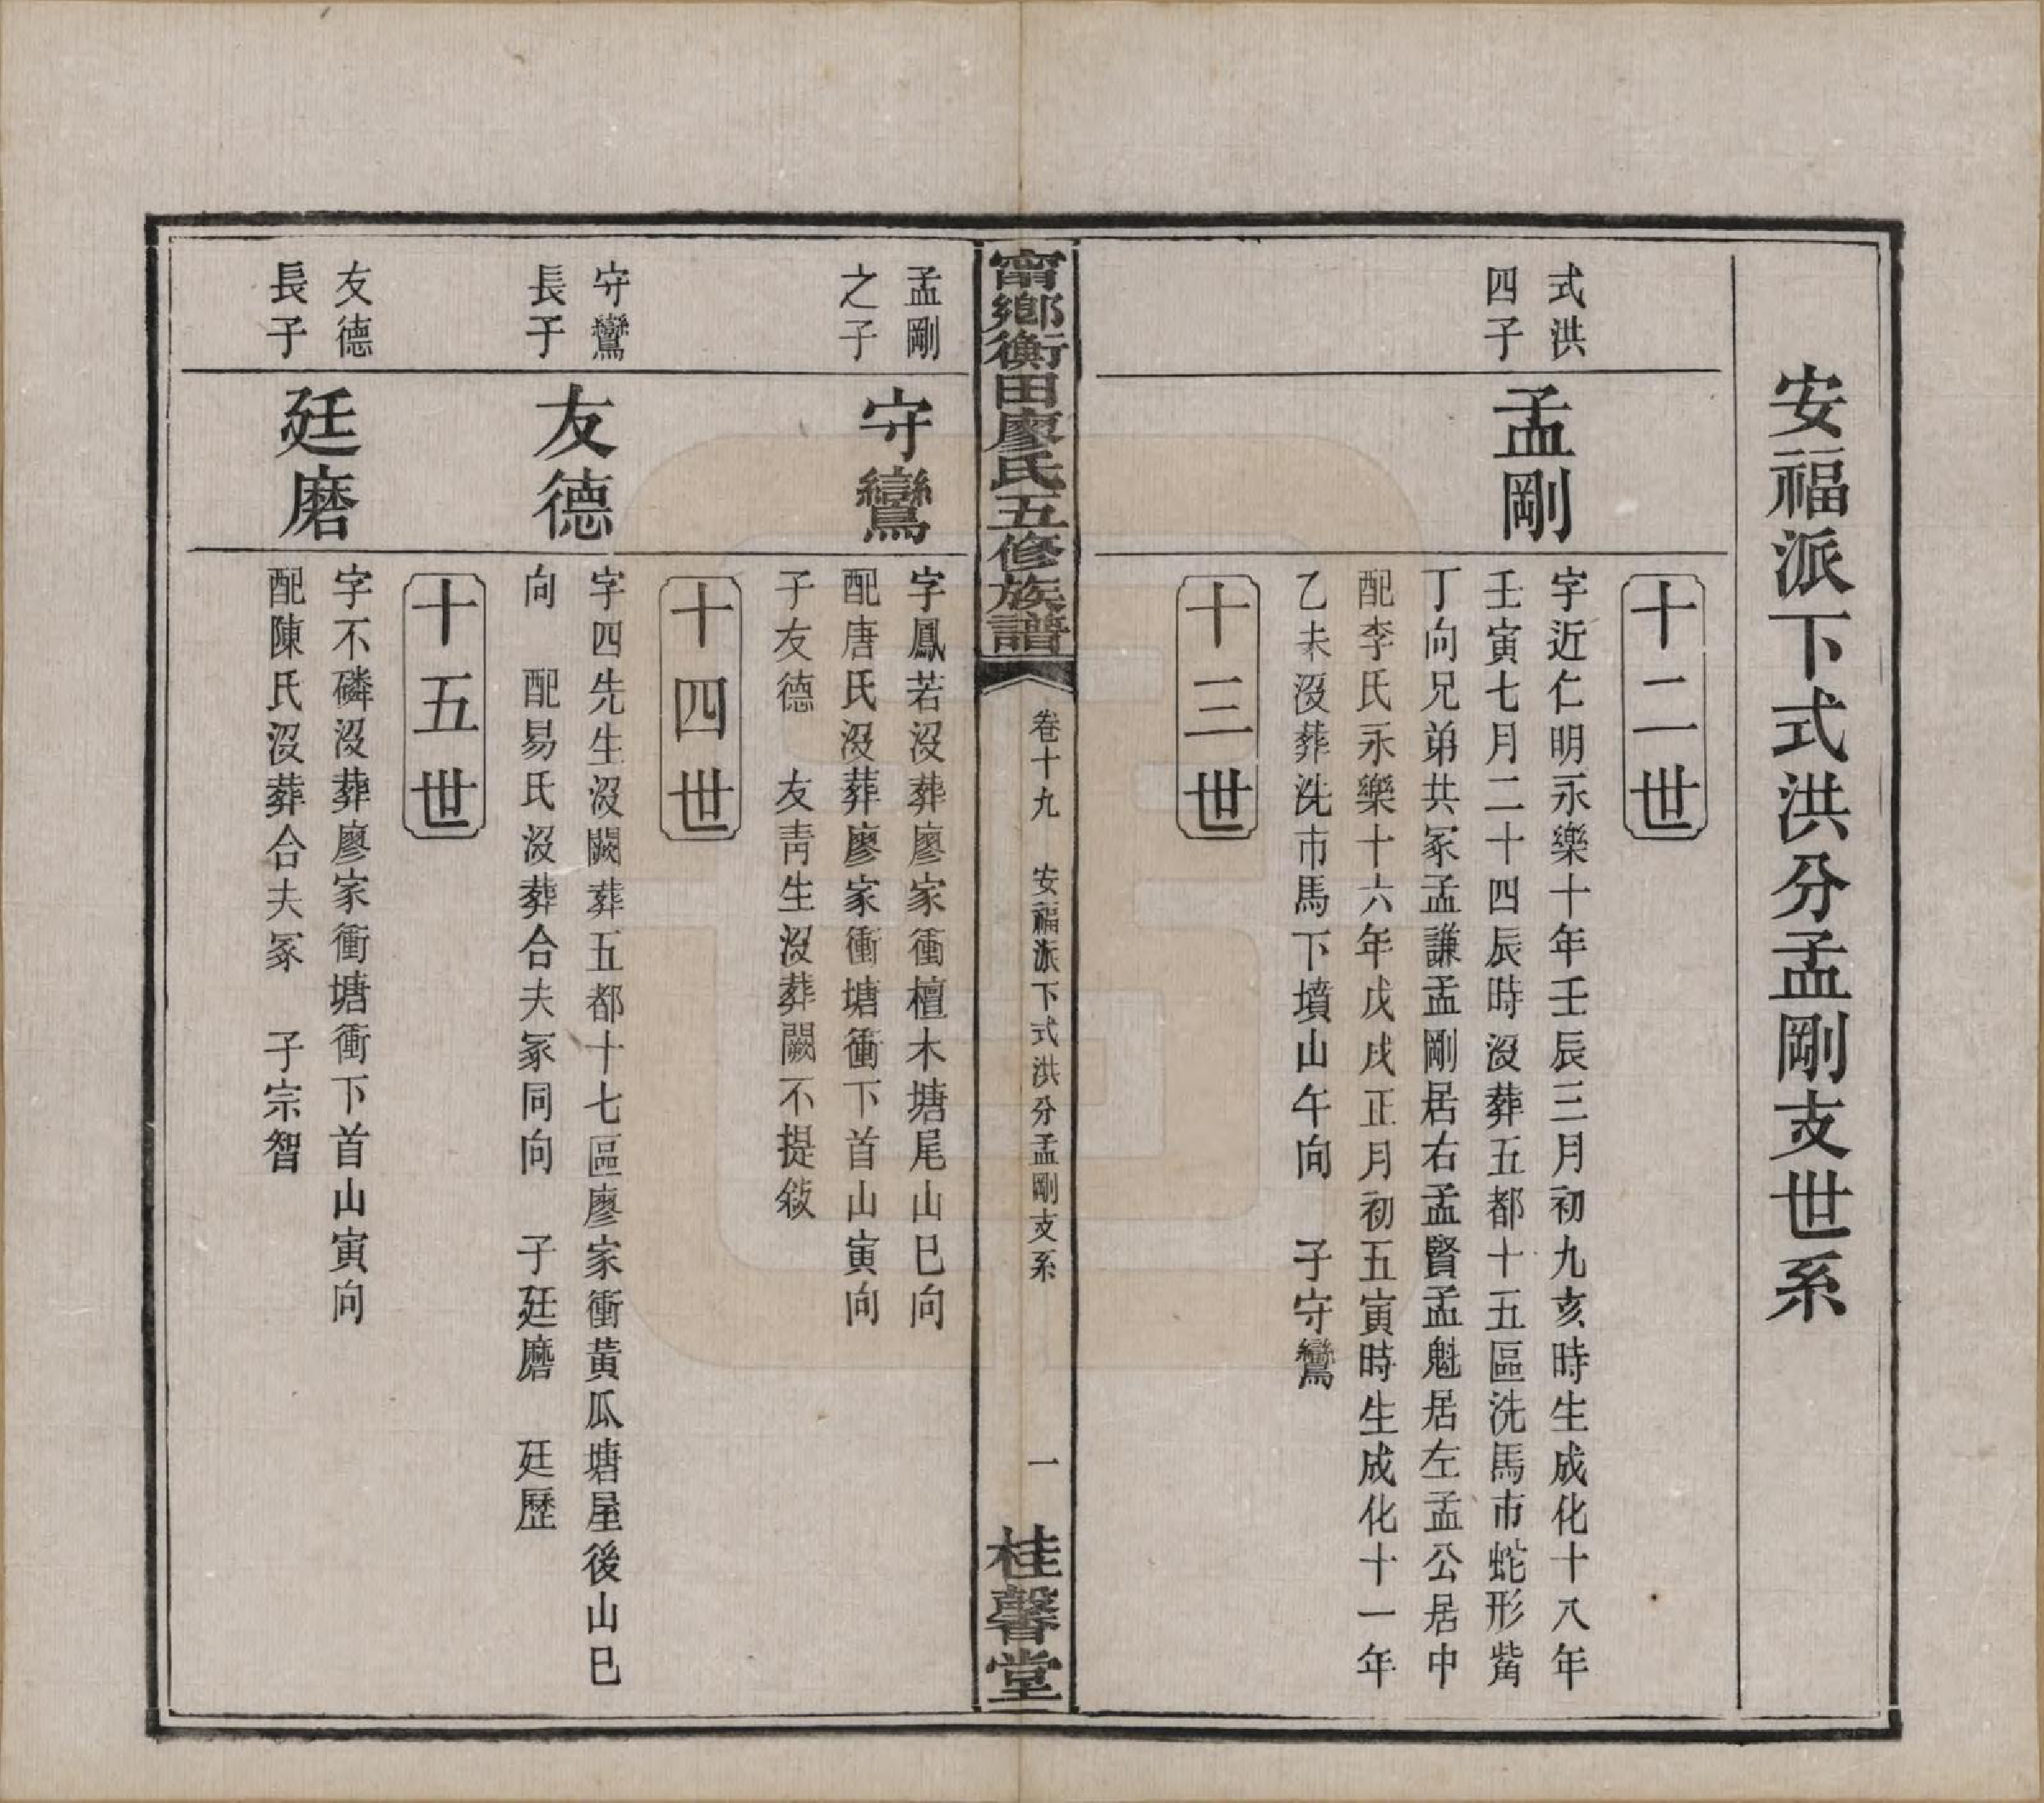 安福派下式洪分孟剛支世系
十二世
式洪
四子
孟剛
字近仁明永樂十年壬辰三月初九亥時生成化十八年
壬寅七月二十四辰時沒葬五都十五區洗馬市蛇形觜
丁向兄弟共冢孟謙孟剛居右孟賢孟魁居左孟公居中
配李氏永樂十六年戊戌正月初五寅時生成化十一年
乙未沒葬洗市馬下墳山午向　子守鸞
十三世
甯鄉衡田廖氏五修族譜
卷十九　安福派下式洪分孟剛支系
一
桂馨堂
孟剛
之子
守鸞
字鳳若沒葬廖家衝檀木塘尾山巳向
配唐氏沒葬廖家衝塘衝下首山寅向
子友德　友靑生沒葬闕不提敍
十四世
守鸞
長子
友德
字四先生沒闕葬五都十七區廖家衝黃瓜塘屋後山巳
向　配易氏沒葬合夫冢同向　子廷磨　廷歷
十五世
友德
長子
廷磨
字不磷沒葬廖家衝塘衝下首山寅向
配陳氏沒葬合夫冢　子宗智